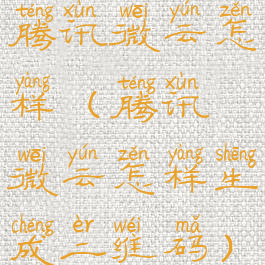 téng xùn wēi yún zěn
腾讯微云怎
yàng téng xùn
样（腾讯
wēi yún zěn yàng shēng
微云怎样生
chéng èr wéi mǎ
成二维码）